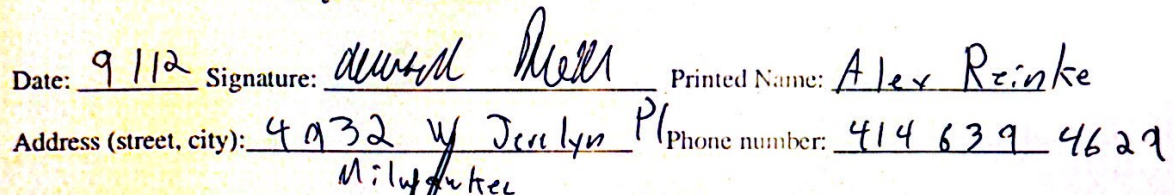 Date: 9/12 Signature: Printed Name: Alex Reinke
Address (street, city): 4932 W Jerelyn Pl Phone number: 414 639 4629
Milwaukee